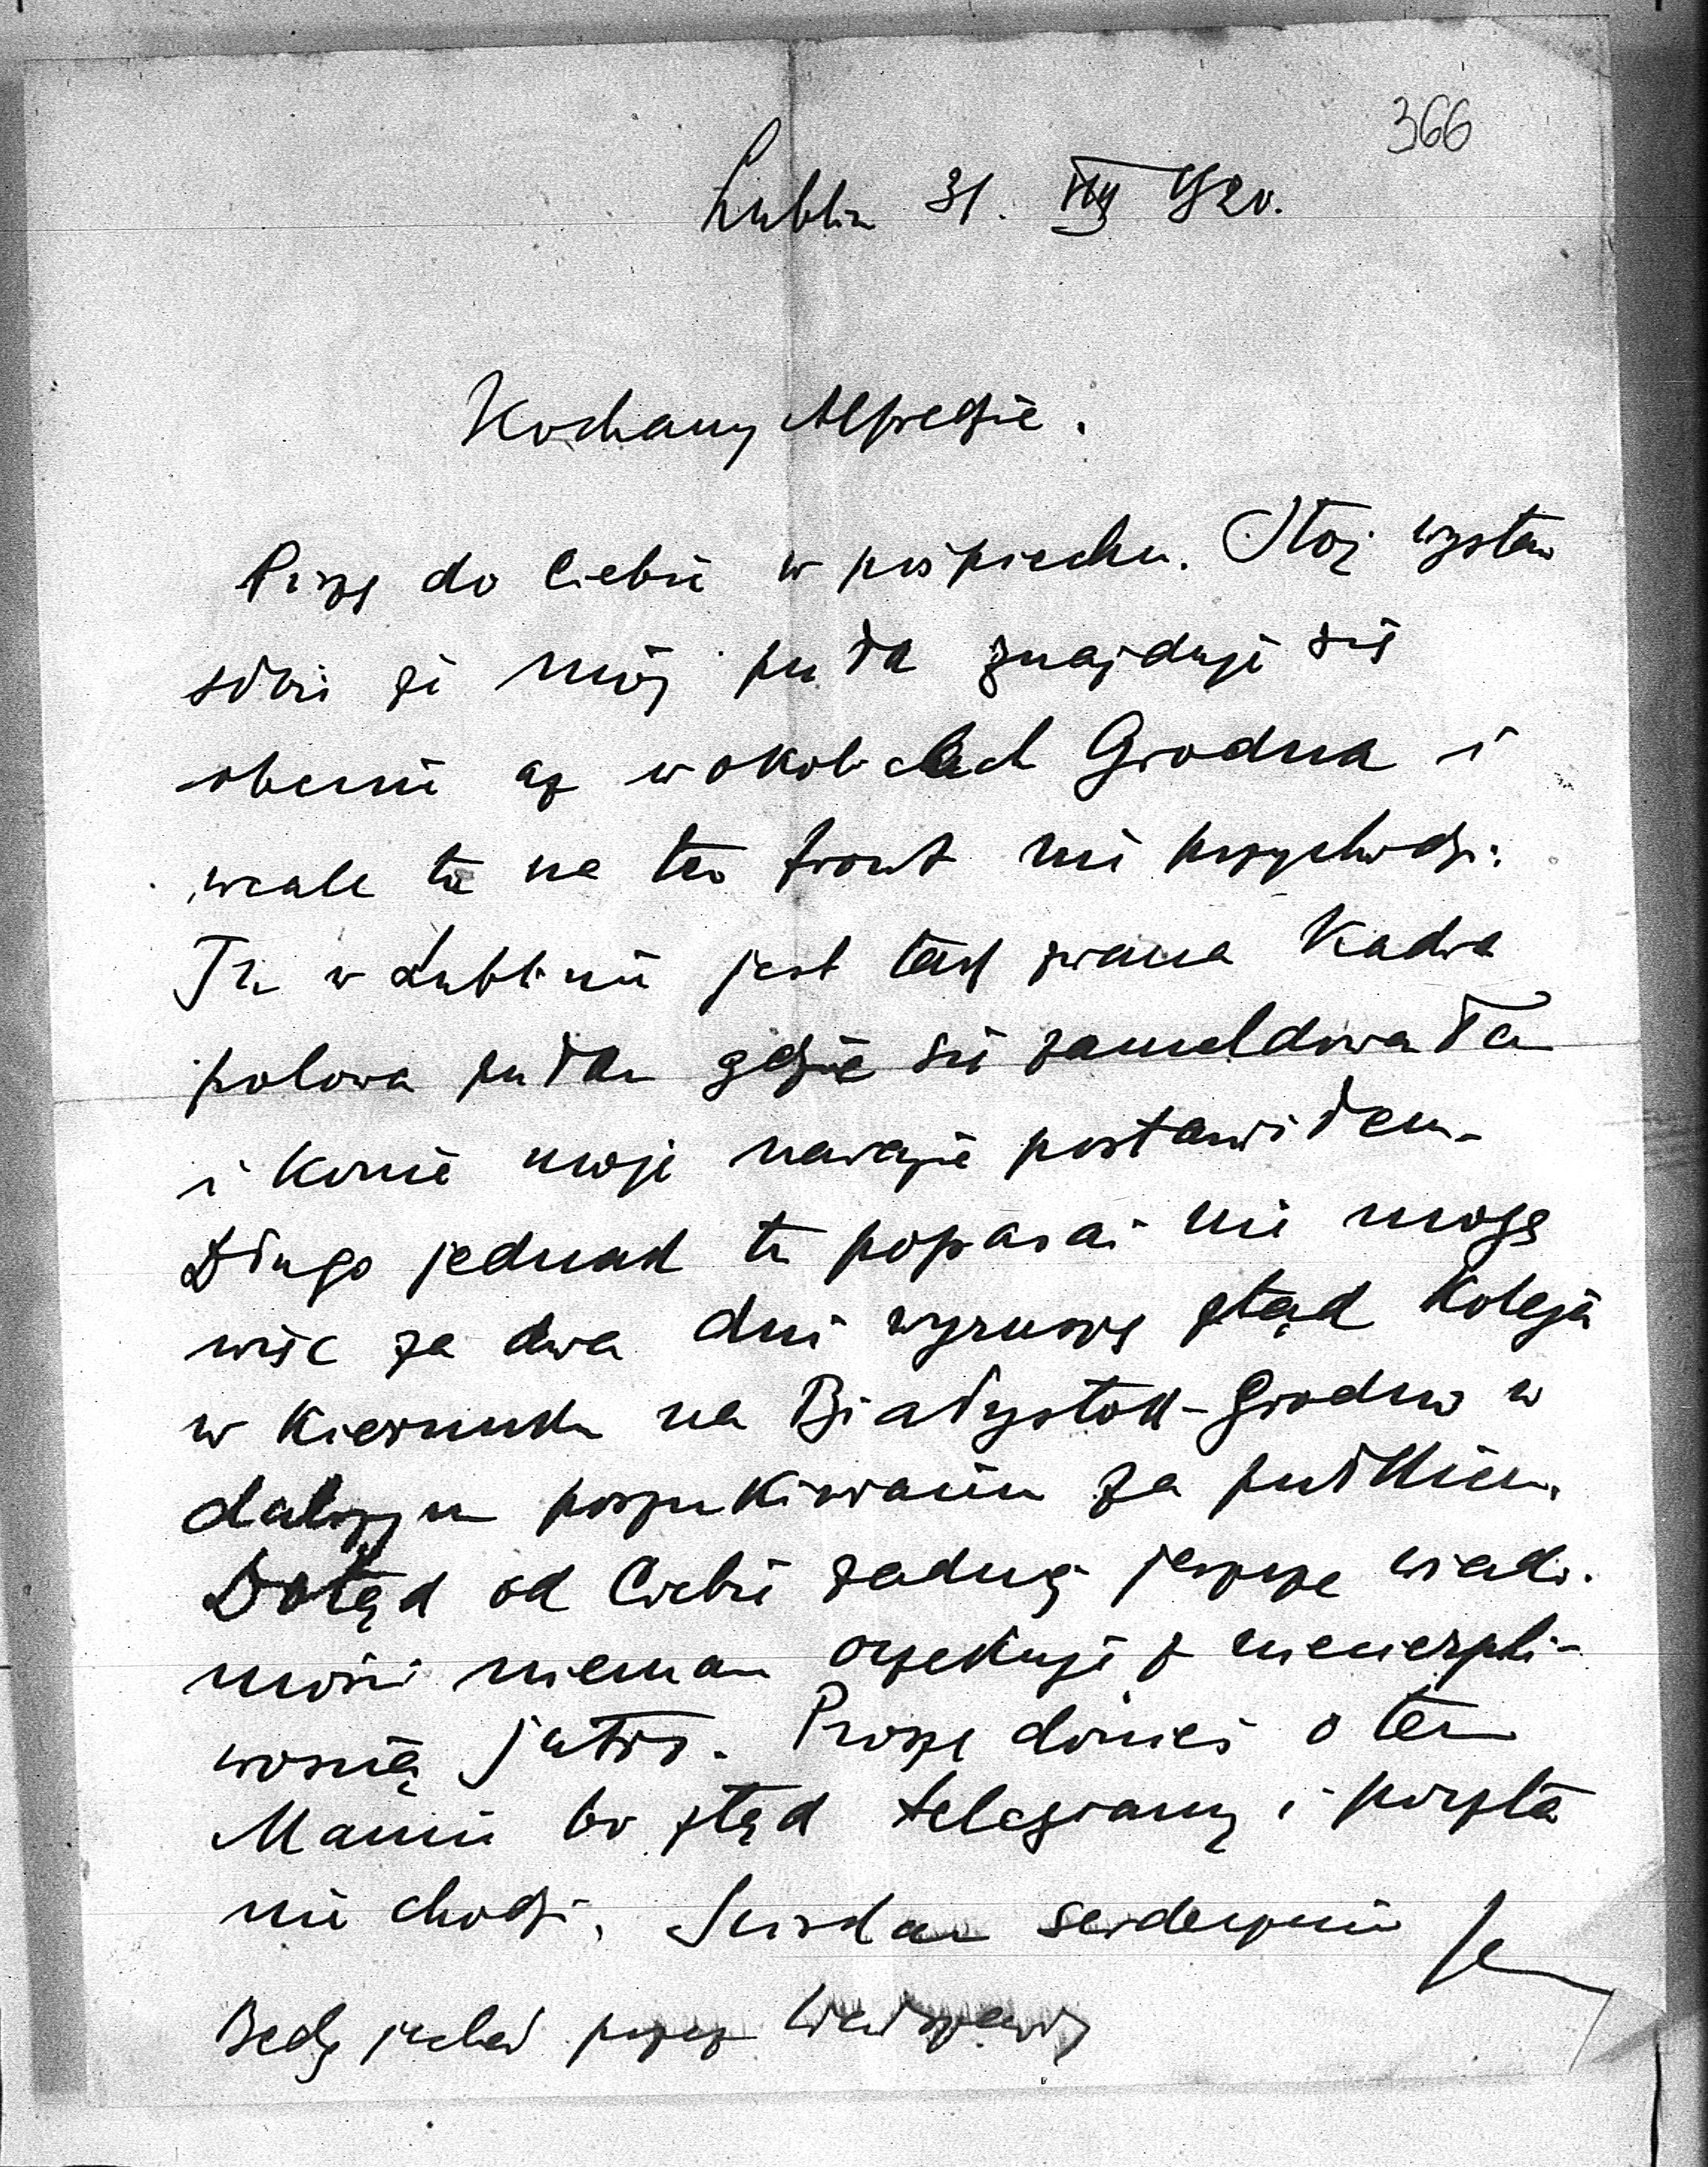 366
Lublin 31. VIII 1920.
Kochany Alfredzie.
Piszę do Ciebie w pośpiechu. Otóż wystaw
sobie że mój pułk znajduje się
obecnie aż w okolicach Grodna i
wcale tu na ten front nie przychodzi.
Tu w Lublinie jest tak zwana Kadra
polowa pułku gdzie się zameldowałem
i konie moje narazie postawiłem.
Długo jednak tu popasać nie mogę
więc za dwa dni wyruszę ztąd Koleją
w Kierunku na Białystok-Grodno w
dalszym poszukiwaniu za pułkiem.
Dotąd od Ciebie żadnej jeszcze wiado-
mości niemam oczekuję z niecierpli-
wością jutro. Proszę donieś o tem
Mamie bo ztąd telegramy i poczta
nie chodzi. Ściskam serdecznie
Będę jechał przez Warszawę